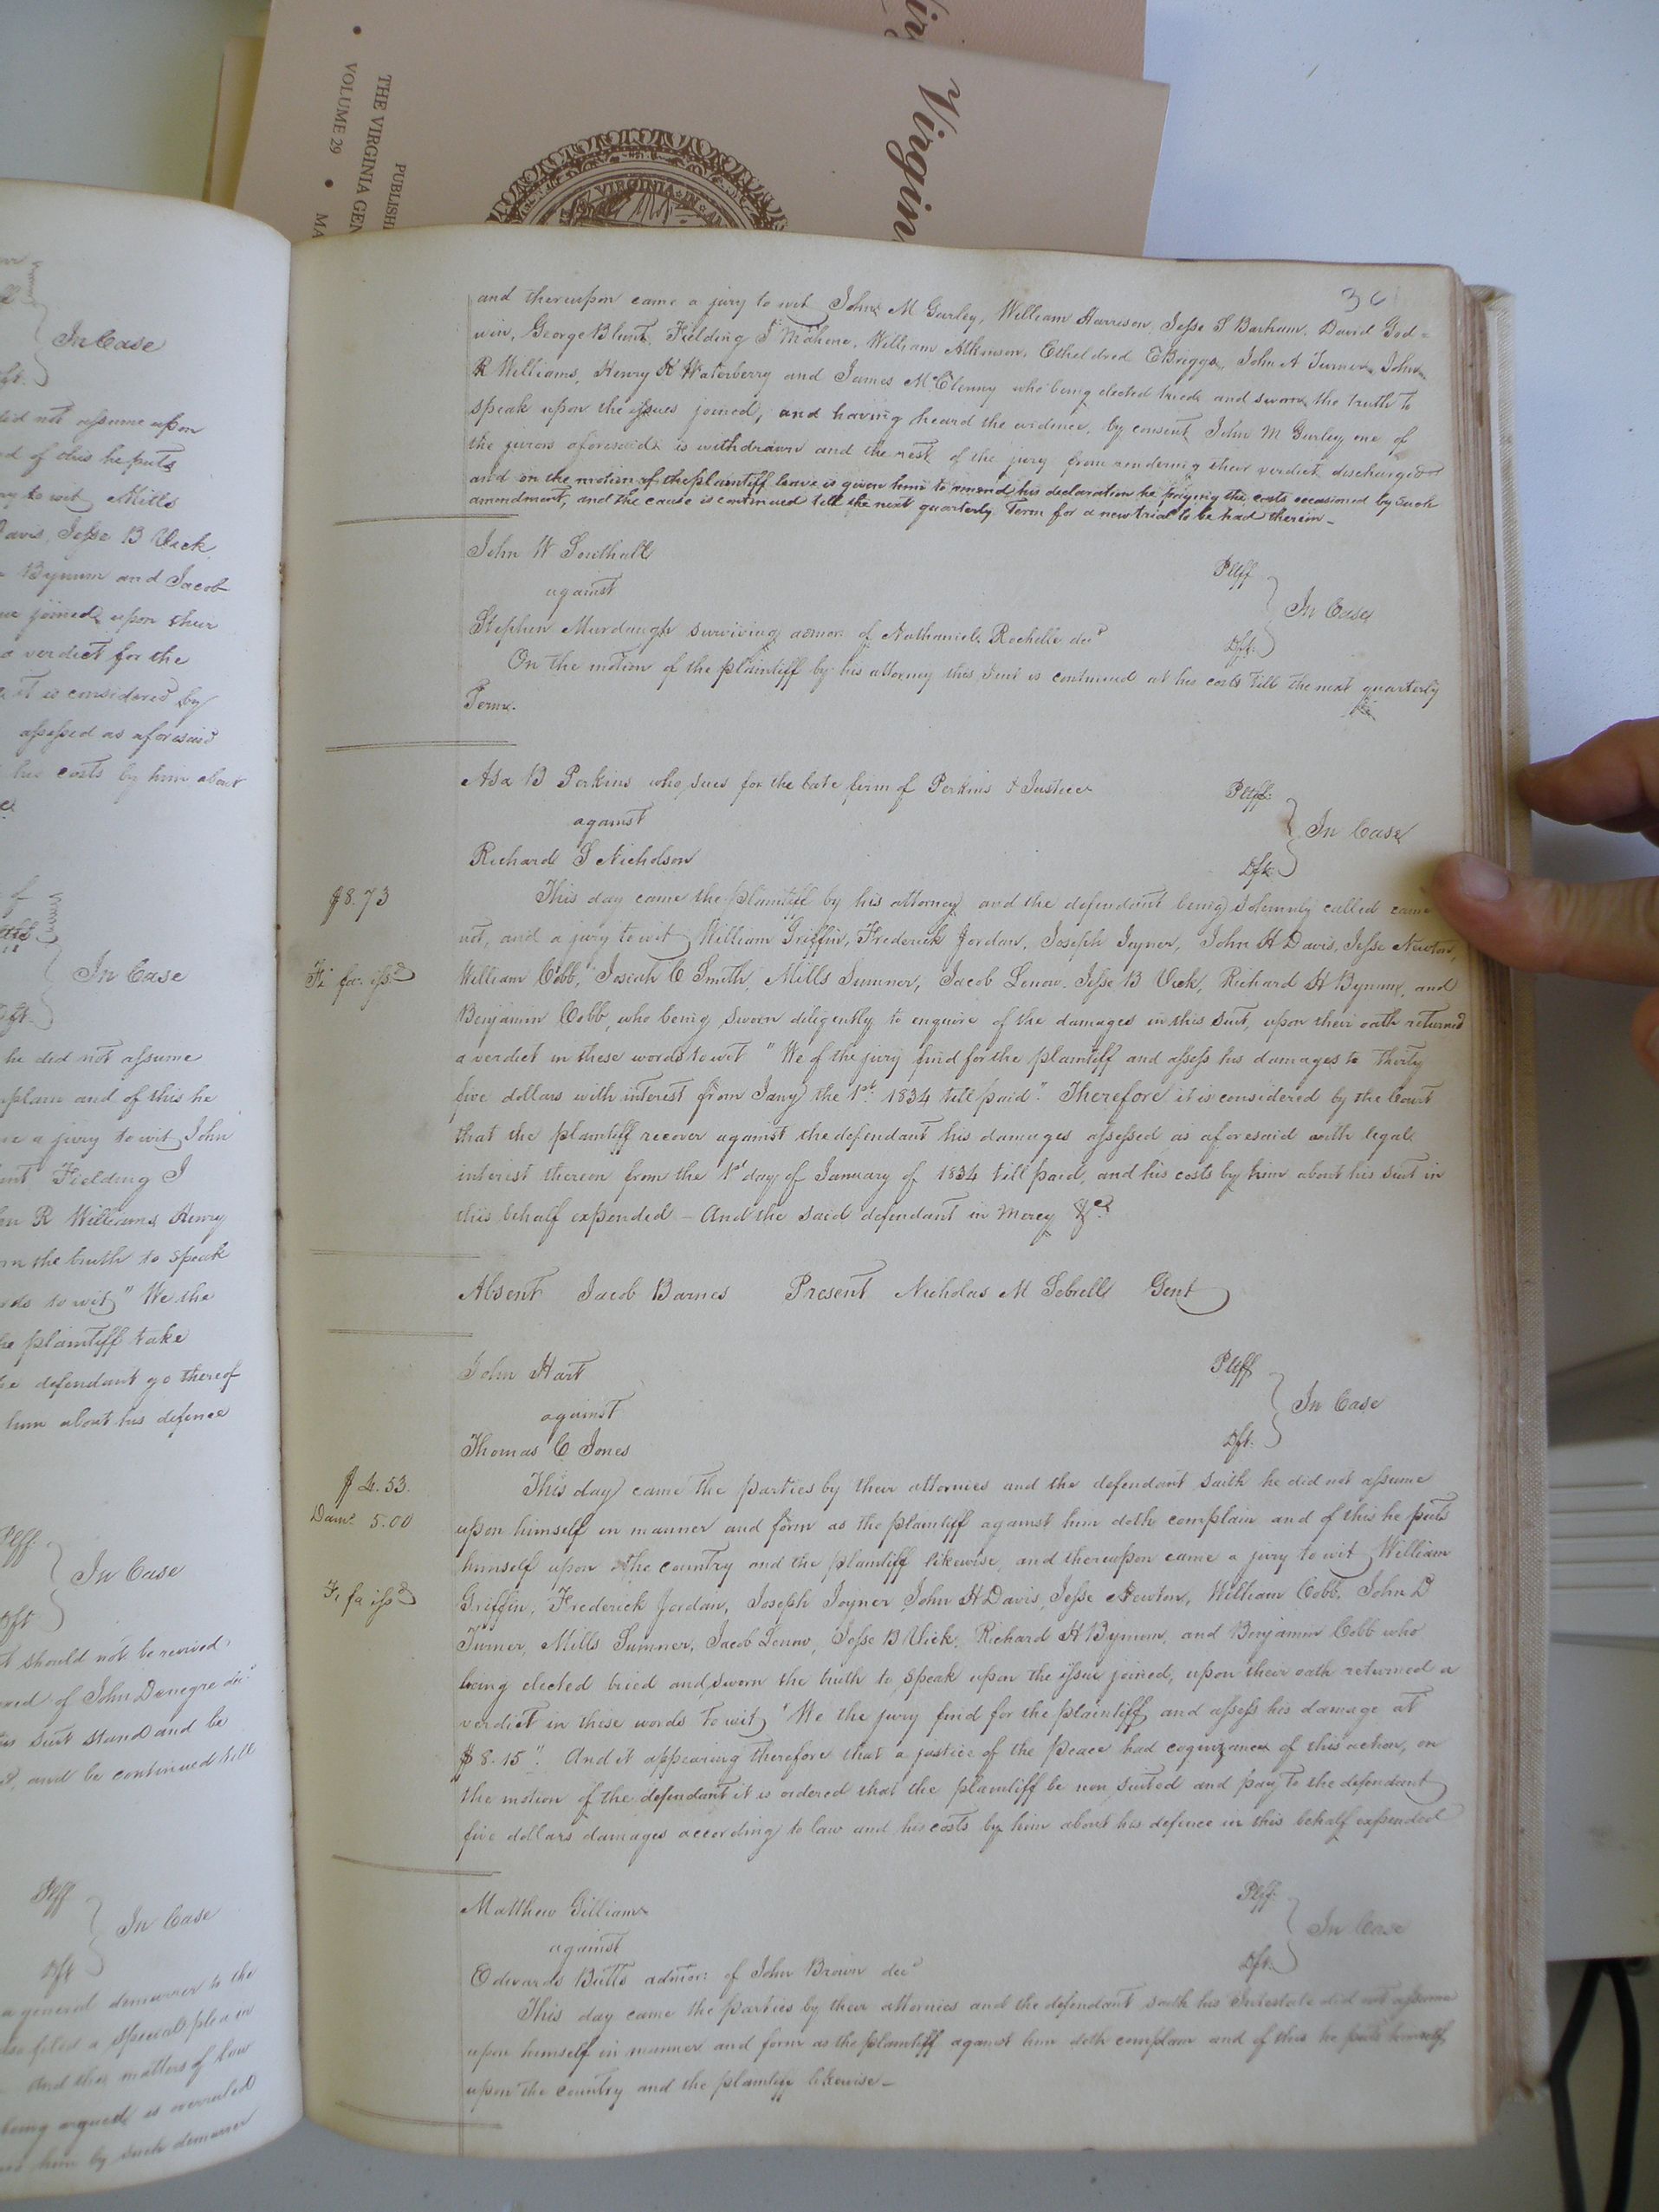 Virgin
PUBLISH
THE VIRGINIA GEN
VOLUME 29 • MA
VIRGINIA IN
In Case
did not assume upon
d of this he puts
ry to wit Mills
Davis, Jesse B Vick
Bynum and Jacob
ue joined, upon their
a verdict for the
it is considered by
assessed as aforesaid
his costs by him about
of
In Case
he did not assume
plain and of this he
a jury to wit John
Fielding J
R Williams Henry
the truth to speak
to wit, "We the
he plaintiff take
he defendant go thereof
him about his defence
Plff
In Case
Dft
should not be revived
of John Denegre decd
suit stand and be
and be continued till
Plff
In Case
Dft
a general demurrer to the
filed a special plea in
And the matters of law
being argued is overruled
him by such demurrer
36
and thereupon came a jury to wit John M Gurley, William Harrison, Jesse S Barham, David God=
win, George Blunt, Fielding J Mahone, William Atkinson, Etheldred E Briggs, John A Turner, John
R Williams, Henry K Waterberry and James McClenny who being elected tried and sworn the truth to
speak upon the issues joined, and having heard the evidence, by consent John M Gurley one of
the jurors aforesaid is withdrawn and the rest of the jury from rendering their verdict discharged
and on the motion of the plaintiff leave is given him to amend his declaration he paying the costs occasioned by such
amendment, and the cause is continued till the next quarterly Term for a new trial to be had therein —
John W Southall Plff
against In Case
Stephen Murdaugh surviving admor. of Nathaniel Rochelle decd Dft.
On the motion of the plaintiff by his attorney this suit is continued at his costs till the next quarterly
Term.
Asa B Perkins who sues for the late firm of Perkins & Justice Plff.
against In Case
Richard S Nicholson Dft.
$8.73 This day came the plaintiff by his attorney and the defendant being solemnly called came
not, and a jury to wit William Griffin, Frederick Jordan, Joseph Joyner, John H Davis, Jesse Newton,
Fi fa: issd William Cobb, Josiah C Smith, Mills Sumner, Jacob Lenow, Jesse B Vick, Richard H Bynum, and
Benjamin Cobb, who being sworn diligently to enquire of the damages in this suit, upon their oath returned
a verdict in these words to wit "We of the jury find for the plaintiff and assess his damages to thirty
five dollars with interest from Jany the 1st. 1834 till paid". Therefore it is considered by the Court
that the plaintiff recover against the defendant his damages assessed as aforesaid with legal
interest thereon from the 1st day of January of 1834 till paid, and his costs by him about his suit in
this behalf expended — And the said defendant in mercy &c.
Absent Jacob Barnes Present Nicholas M Sebrell Gent
John Hart Plff
against In Case
Thomas C Jones Dft.
$4.53. This day came the parties by their attornies and the defendant saith he did not assume
Dams. 5.00 upon himself in manner and form as the plaintiff against him doth complain and of this he puts
himself upon the country and the plaintiff likewise, and thereupon came a jury to wit William
Fi fa issd Griffin, Frederick Jordan, Joseph Joyner, John H Davis, Jesse Newton, William Cobb, John D
Turner, Mills Sumner, Jacob Lenow, Jesse B Vick, Richard H Bynum, and Benjamin Cobb who
being elected tried and sworn the truth to speak upon the issue joined, upon their oath returned a
verdict in these words to wit, "We the jury find for the plaintiff and assess his damage at
$8.15". And it appearing therefore that a justice of the peace had cognizance of this action, on
the motion of the defendant it is ordered that the plaintiff be non suited and pay to the defendant
five dollars damages according to law and his costs by him about his defence in this behalf expended
Matthew Gilliam Plff.
against In Case
Edwards Butts admor: of John Brown decd Dft.
This day came the parties by their attornies and the defendant saith his Intestate did not assume
upon himself in manner and form as the plaintiff against him doth complain and of this he puts himself
upon the country and the plaintiff likewise —